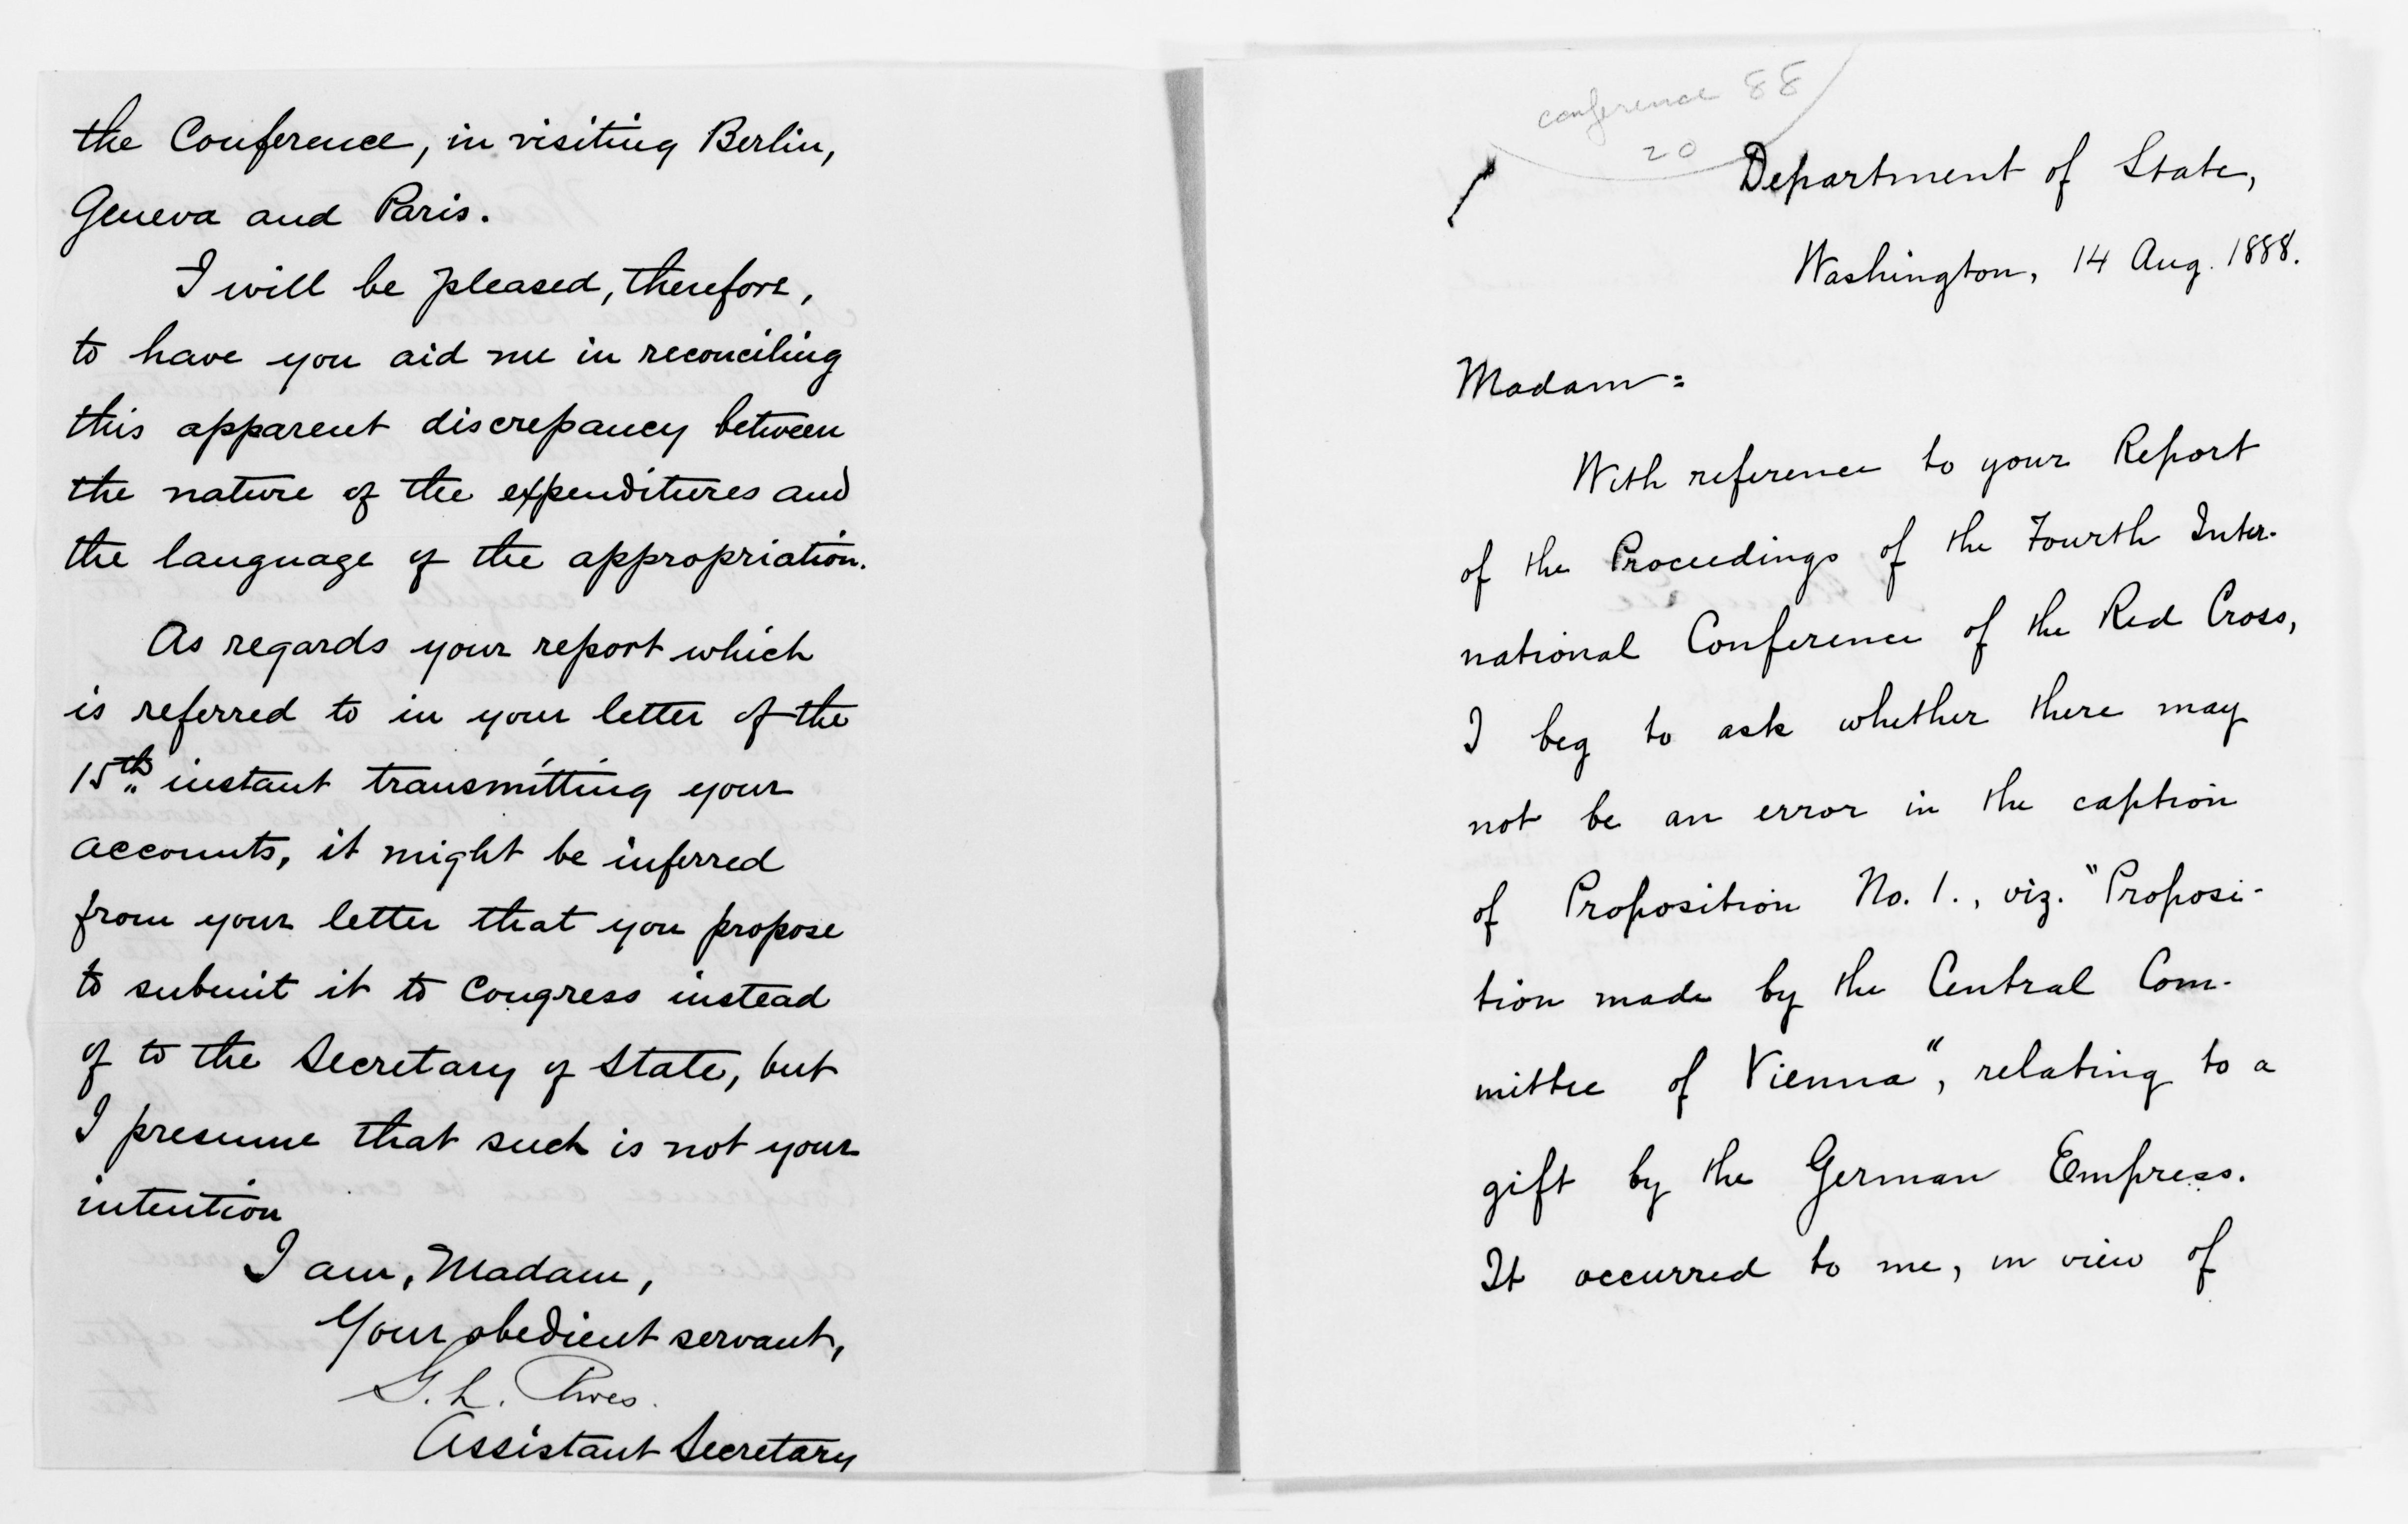 the Conference, in visiting Berlin,
Geneva and Paris.
I will be pleased, therefore,
to have you aid me in reconciling
this apparent discrepancy between
the nature of the expenditures and
the language of the appropriation.
As regards your report which
is referred to in your letter of the
15th instant transmitting your
accounts, it might be inferred
from your letter that you propose
to submit it to Congress instead
of to the Secretary of State, but
I presume that such is not your
intention
I am, Madam,
Your obedient servant,
G. L. Rives.
Assistant Secretary
conference 88
20
Department of State,
Washington, 14 Aug. 1888.
Madam:
With reference to your Report
of the Proceedings of the Fourth Inter-
national Conference of the Red Cross,
I beg to ask whether there may
not be an error in the caption
of Proposition No. 1., viz. "Proposi-
tion made by the Central Com-
mittee of Vienna", relating to a
gift by the German Empress.
It occurred to me, in view of